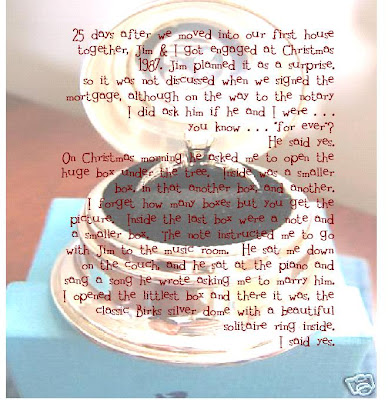 25 days after we moved into our first house
together, Jim & I got engaged at Christmas
1987. Jim planned it as a surprise,
so it was not discussed when we signed the
mortgage, although on the way to the notary
I did ask him if he and I were . . .
you know . . . "for ever"?
He said yes.
On Christmas morning he asked me to open the
huge box under the tree. Inside was a smaller
box, in that another box, and another.
I forget how many boxes but you get the
picture. Inside the last box were a note and
a smaller box. The note instructed me to go
with Jim to the music room. He sat me down
on the couch, and he sat at the piano and
sang a song he wrote asking me to marry him.
I opened the littlest box and there it was, the
classic Birks silver dome with a beautiful
solitaire ring inside.
I said yes.